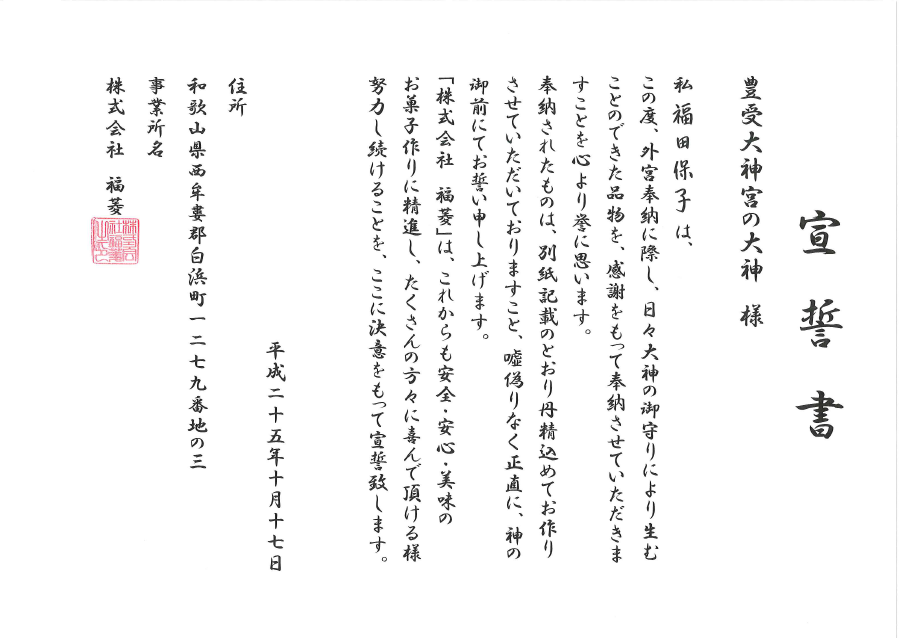 宣誓書
豊受大神宮の大神　様
私　福田保子　は、
この度、外宮奉納に際し、日々大神の御守りにより生む
ことのできた品物を、感謝をもって奉納させていただきま
すことを心より誉に思います。
奉納されたものは、別紙記載のとおり丹精込めてお作り
させていただいておりますこと、嘘偽りなく正直に、神の
御前にてお誓い申し上げます。
「株式会社　福菱」は、これからも安全・安心・美味の
お菓子作りに精進し、たくさんの方々に喜んで頂ける様
努力し続けることを、ここに決意をもって宣誓致します。
平成二十五年十月十七日
住所
和歌山県西牟婁郡白浜町一二七九番地の三
事業所名
株式会社　福菱